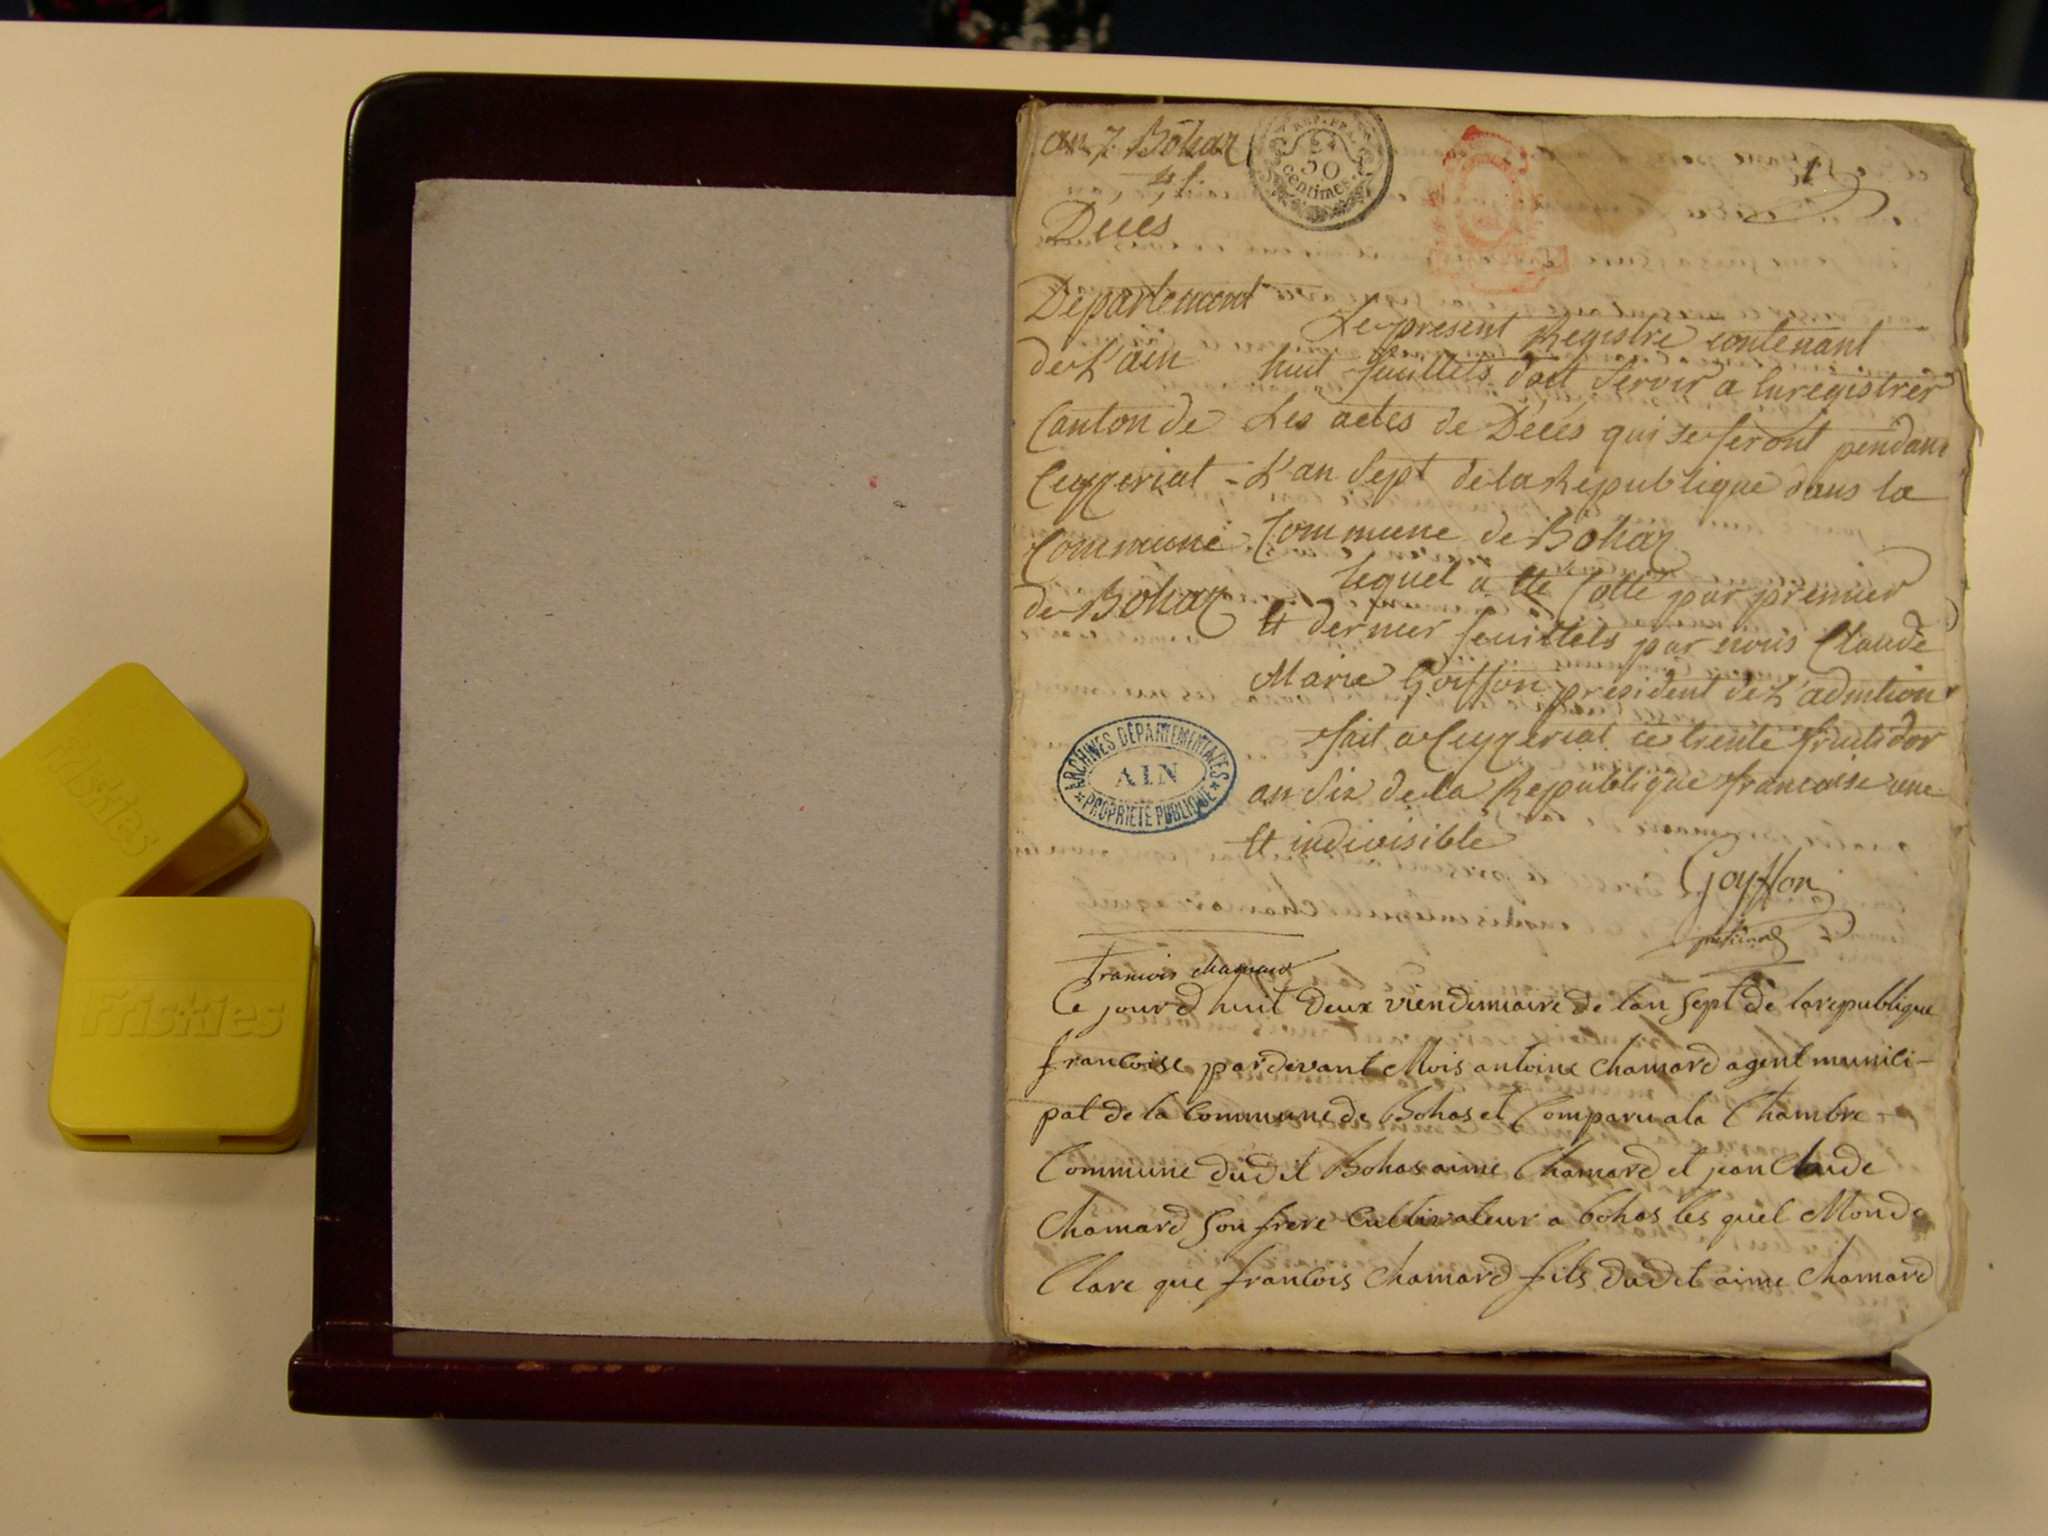 an 7. Bohaz
Décés
REP. FRA.
50
centimes.
1
Departement
de L'ain
Canton de
Ceyzeriat
Commune
de Bohaz
Le present Registre contenant
huit feuillets doit servir a Enregistrer
Les actes de Décés qui se feront pendant
L'an sept de la République dans la
Commune de Bohaz
lequel a eté Cotté par premier
Et dernier feuillets par nous Claude
Marie Goiffon president de L'admtion
fait a Ceyzeriat ce trente fructidor
an Six de la République francaise une
Et indivisible
Goyffon
ARCHIVES DÉPARTEMENTALES
AIN
PROPRIÉTÉ PUBLIQUE
francois chamard
Ce jourd huit deux viendemiaire de lan sept de la republique
francoise par devant Mois antoine chamard agent munici-
pal de la Commune de Bohas et Comparu a la Chambre
Commune dudit Bohas aime Chamard et jean Claude
chamard son frere Cultivateur a bohas les quel Mon de
Clare que francois chamard fils dudit aime chamard
Friskies
Friskies